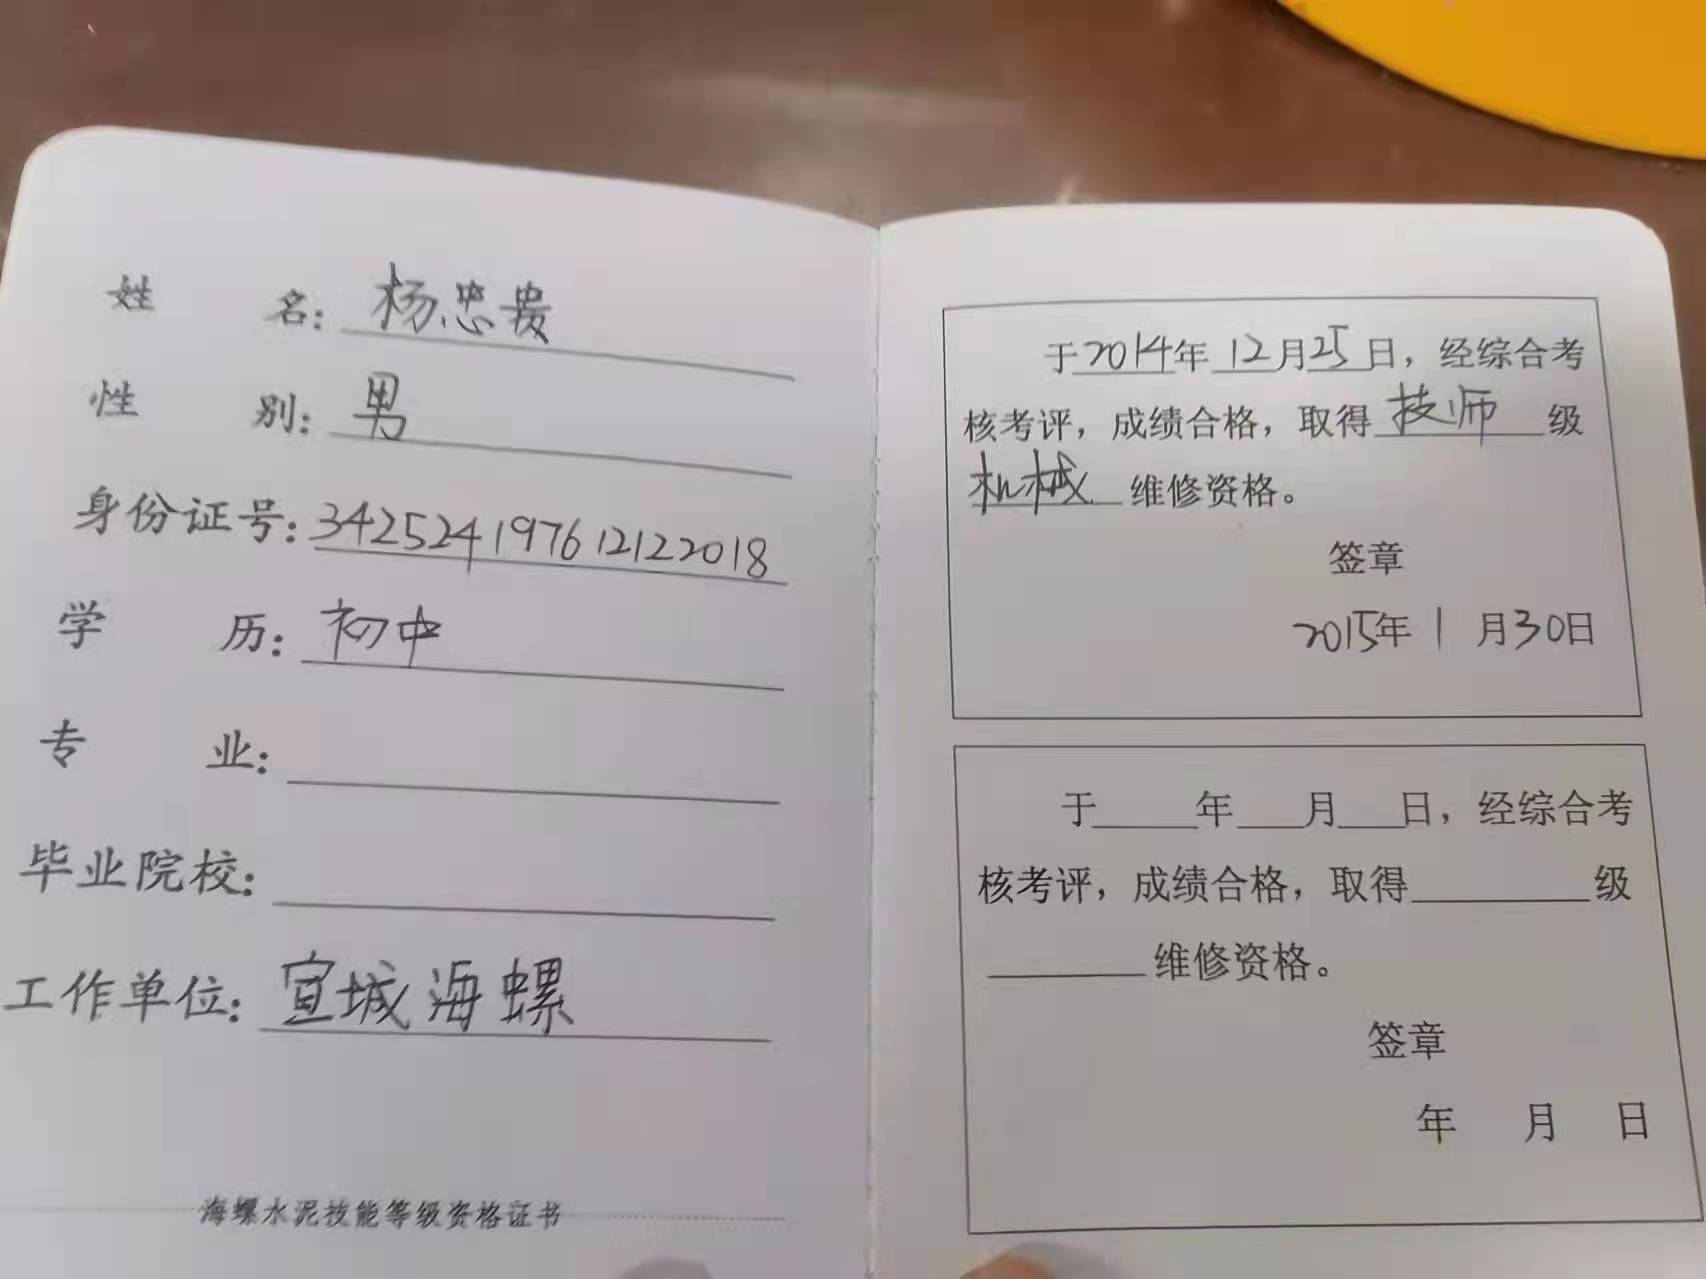 姓 名: 杨忠贵
性 别: 男
身份证号: 342524197612122018
学 历: 初中
专 业:
毕业院校:
工作单位: 宣城海螺
海螺水泥技能等级资格证书
于2014年12月25日，经综合考
核考评，成绩合格，取得技师级
机械维修资格。
签章
2015年1月30日
于____年___月___日，经综合考
核考评，成绩合格，取得________级
_______维修资格。
签章
年 月 日